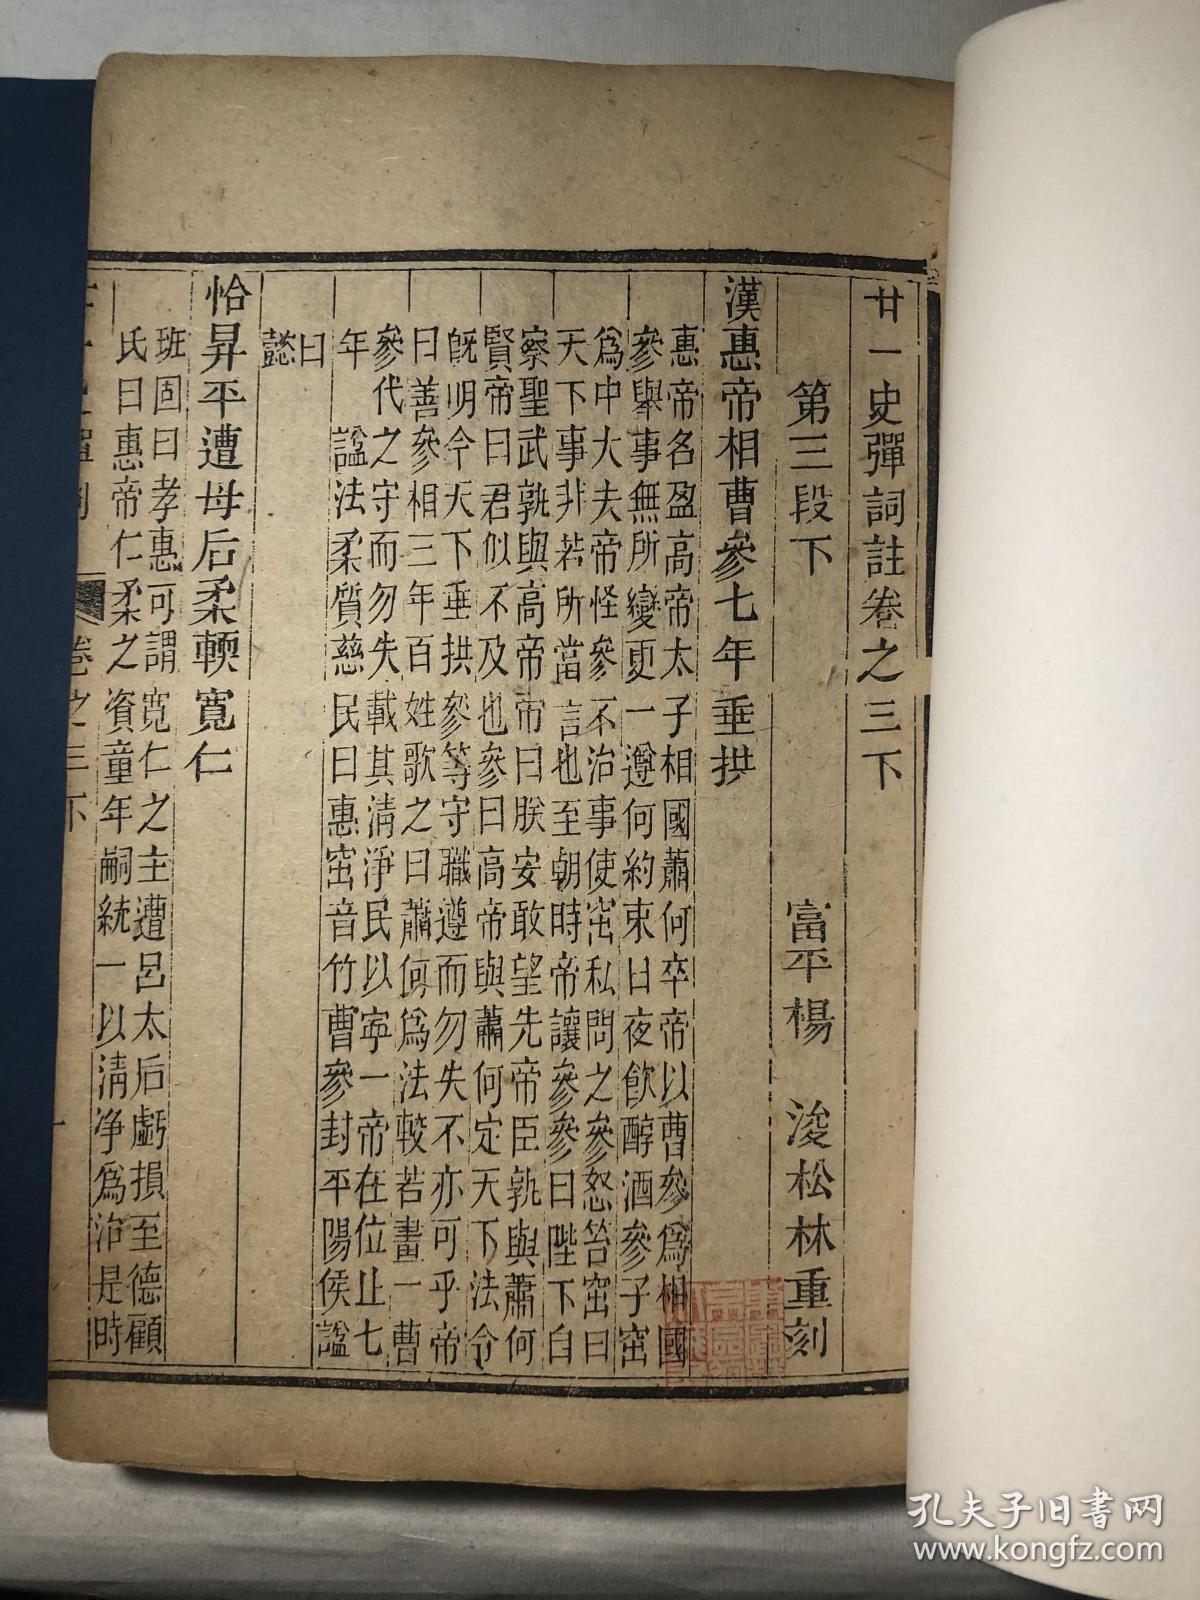 廿一史彈詞註卷之三下
第三段下　富平楊　浚松林重刻
漢惠帝相曹參七年垂拱
惠帝名盈高帝太子相國蕭何卒帝以曹參爲相國
參舉事無所變更一遵何約束日夜飲醇酒參子窋
爲中大夫帝怪參不治事使窋私問之參怒笞窋曰
天下事非若所當言也至朝時帝讓參參曰陛下自
察聖武孰與高帝帝曰朕安敢望先帝臣孰與蕭何
賢帝曰君似不及也參曰高帝與蕭何定天下法令
既明今天下垂拱參等守職遵而勿失不亦可乎帝
曰善參相三年百姓歌之曰蕭何爲法較若畫一曹
參代之守而勿失載其清淨民以寧一帝在位止七
年　諡法柔質慈民曰惠窋音竹曹參封平陽侯諡
曰
懿
恰昇平遭母后柔輭寬仁
班固曰孝惠可謂寬仁之主遭呂太后虧損至德顧
氏曰惠帝仁柔之資童年嗣統一以清淨爲治是時
卷之三下
一
孔夫子旧书网
www.kongfz.com